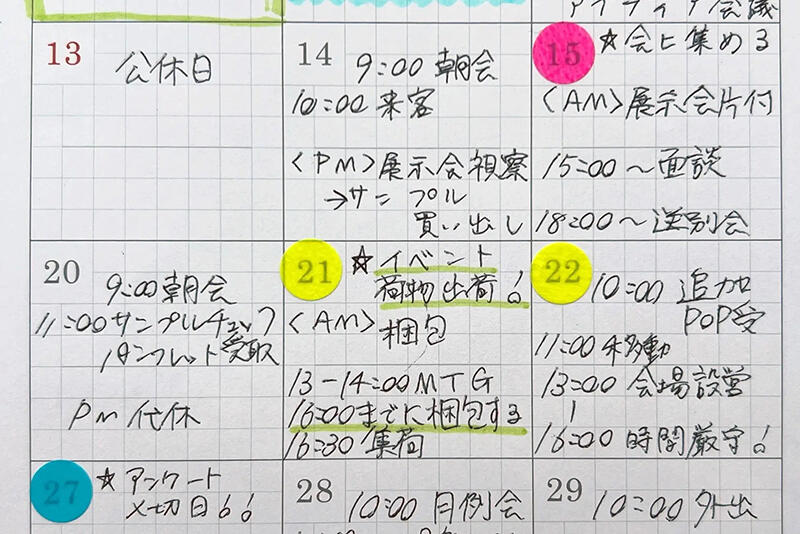 アイディア会議
13
公休日
14
9:00 朝会
10:00 来客
<PM>展示会視察
→サンプル
買い出し
15
☆会ヒ集める
<AM>展示会片付
15:00～面談
18:00～送別会
20
9:00 朝会
11:00 サンプルチェック
パンフレット受取
Pm 代休
21
☆イベント
荷物出荷!
<AM>
梱包
13-14:00 MTG
16:00までに梱包する
16:30 集荷
22
10:00 追加
POP受
11:00 移動
13:00 会場設営
|
16:00 時間厳守!
27
☆アンケート
〆切日!!
28
10:00 月例会
29
10:00 外出